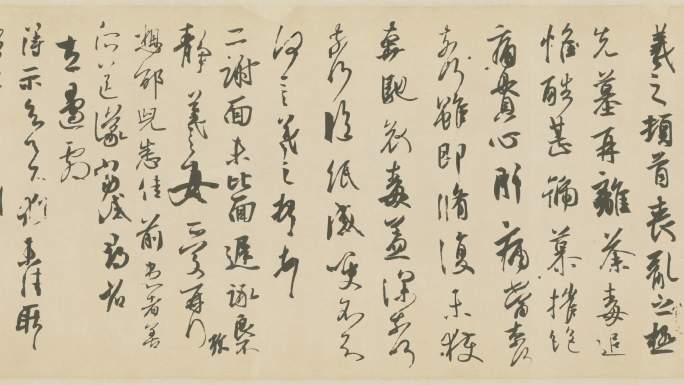 羲之頓首喪亂之極
先墓再離荼毒追
惟酷甚號慕摧絕
痛貫心肝痛當奈何
奈何雖即脩復未獲
奔馳哀毒益深奈何
奈何臨紙感哽不知
何言羲之頓首頓首
二謝面未比面遲詠良不
靜羲之女愛再拜
想邰兒悉佳前患者善
所送議當試尋
左邊劇
得示知足下猶未佳耿耿